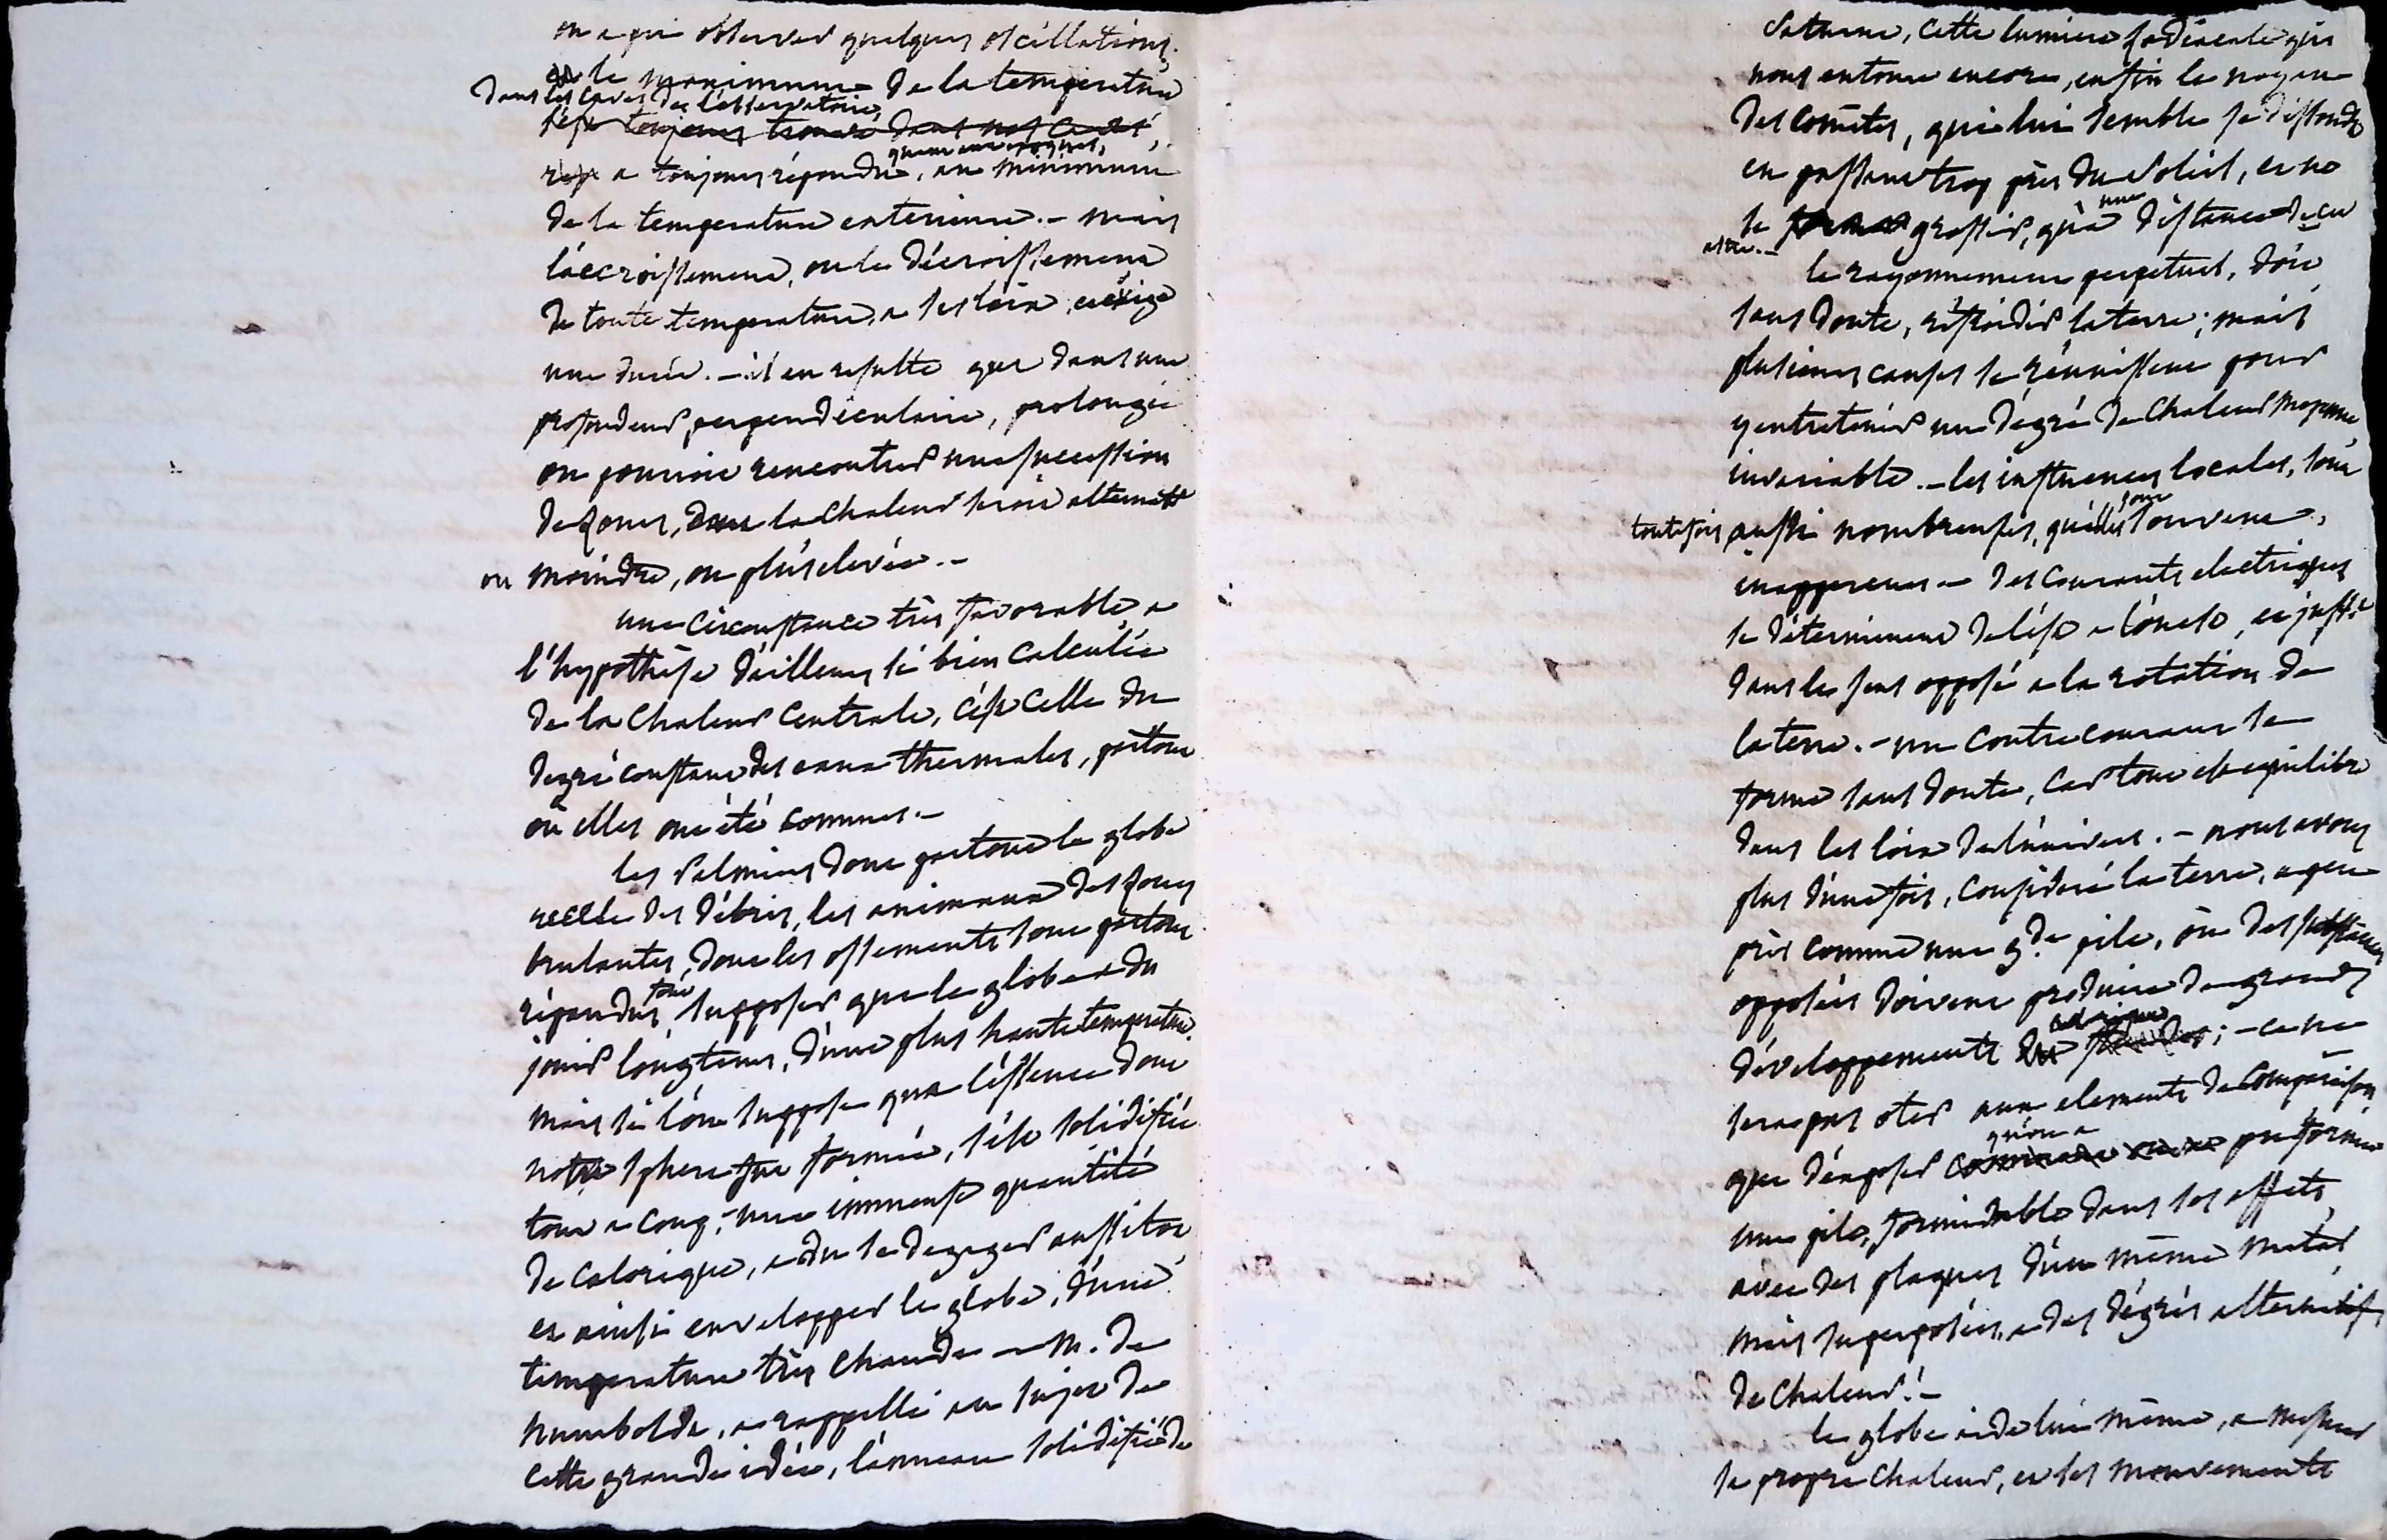 on a pu observer quelques oscillations.
et le maximum de la temperature
dans les caves de l'observatoire,
s'est toujours trouvé dans nos caves,
rep a toujours répondu, au minimum
de la temperature exterieure. - mais
l'accroissement, ou le décroissement
de toute temperature, a ses loix, et éxige
une durée. - il en resulte que dans une
profondeur perpendiculaire, prolongée
on pourroit rencontrer une succession
de zones, dont la chaleur seroit alternatt
ou moindre, ou plus elevée. -
une circonstance très favorable, a
l'hypothèse d'ailleurs si bien calculée
de la chaleur centrale, c'est celle du
degré constant des eaux thermales, partout
où elles ont été connues. -
les Palmiers dont partout le globe
recele des débris, les animaux des zones
brulantes, dont les ossements sont partout
répandus, font supposer que le globe a du
jouir longtems, d'une plus haute temperature.
mais si l'on suppose que l'essence dont
notre sphere fut formée, s'est solidifiée
tout a coup; une immense quantité
de calorique, a du se degager aussitot
et ainsi envelopper le globe, d'une
temperature très chaude - M. de
humboldt, a rappellé au sujet de
cette grande idée, l'anneau solidifié de
Saturne, cette lumiere zodiacale qui
nous entoure encore, enfin le noyau
des cométes, qui lui semble se dissoudre
en passant trop près du Soleil, et ne
se grossir, qu'a une distance de cet
astre. -
le rayonnement perpetuel, doit
sans doute, réfroidir la terre; mais
plusieurs causes se réunissent pour
y entretenir un dégré de chaleur moyenne
invariable. - les influences locales, sont
toutefois aussi nombreuses, qu'elles sont souvent,
inapperçues - des courants electriques
se déterminent de l'est a l'ouest, et juste
dans le sens opposé a la rotation de
la terre. - un contrecourant se
forme sans doute, car tout est equilibre
dans les loix de l'univers. - nous avons
plus d'une fois, consideré la terre, a peu
près comme une gde. pile, où des substances
opposées doivent produire de grands
développements calorique; - ce ne
sera pas oter aux elements de comparaison,
que d'exposer qu'on a pu former
une pile, formidable dans ses effets,
avec des plaques d'un même metal,
mais superposées, a des dégrés alternatifs
de chaleur! -
le globe a de lui même, a mesure
sa propre chaleur, et ses mouvements